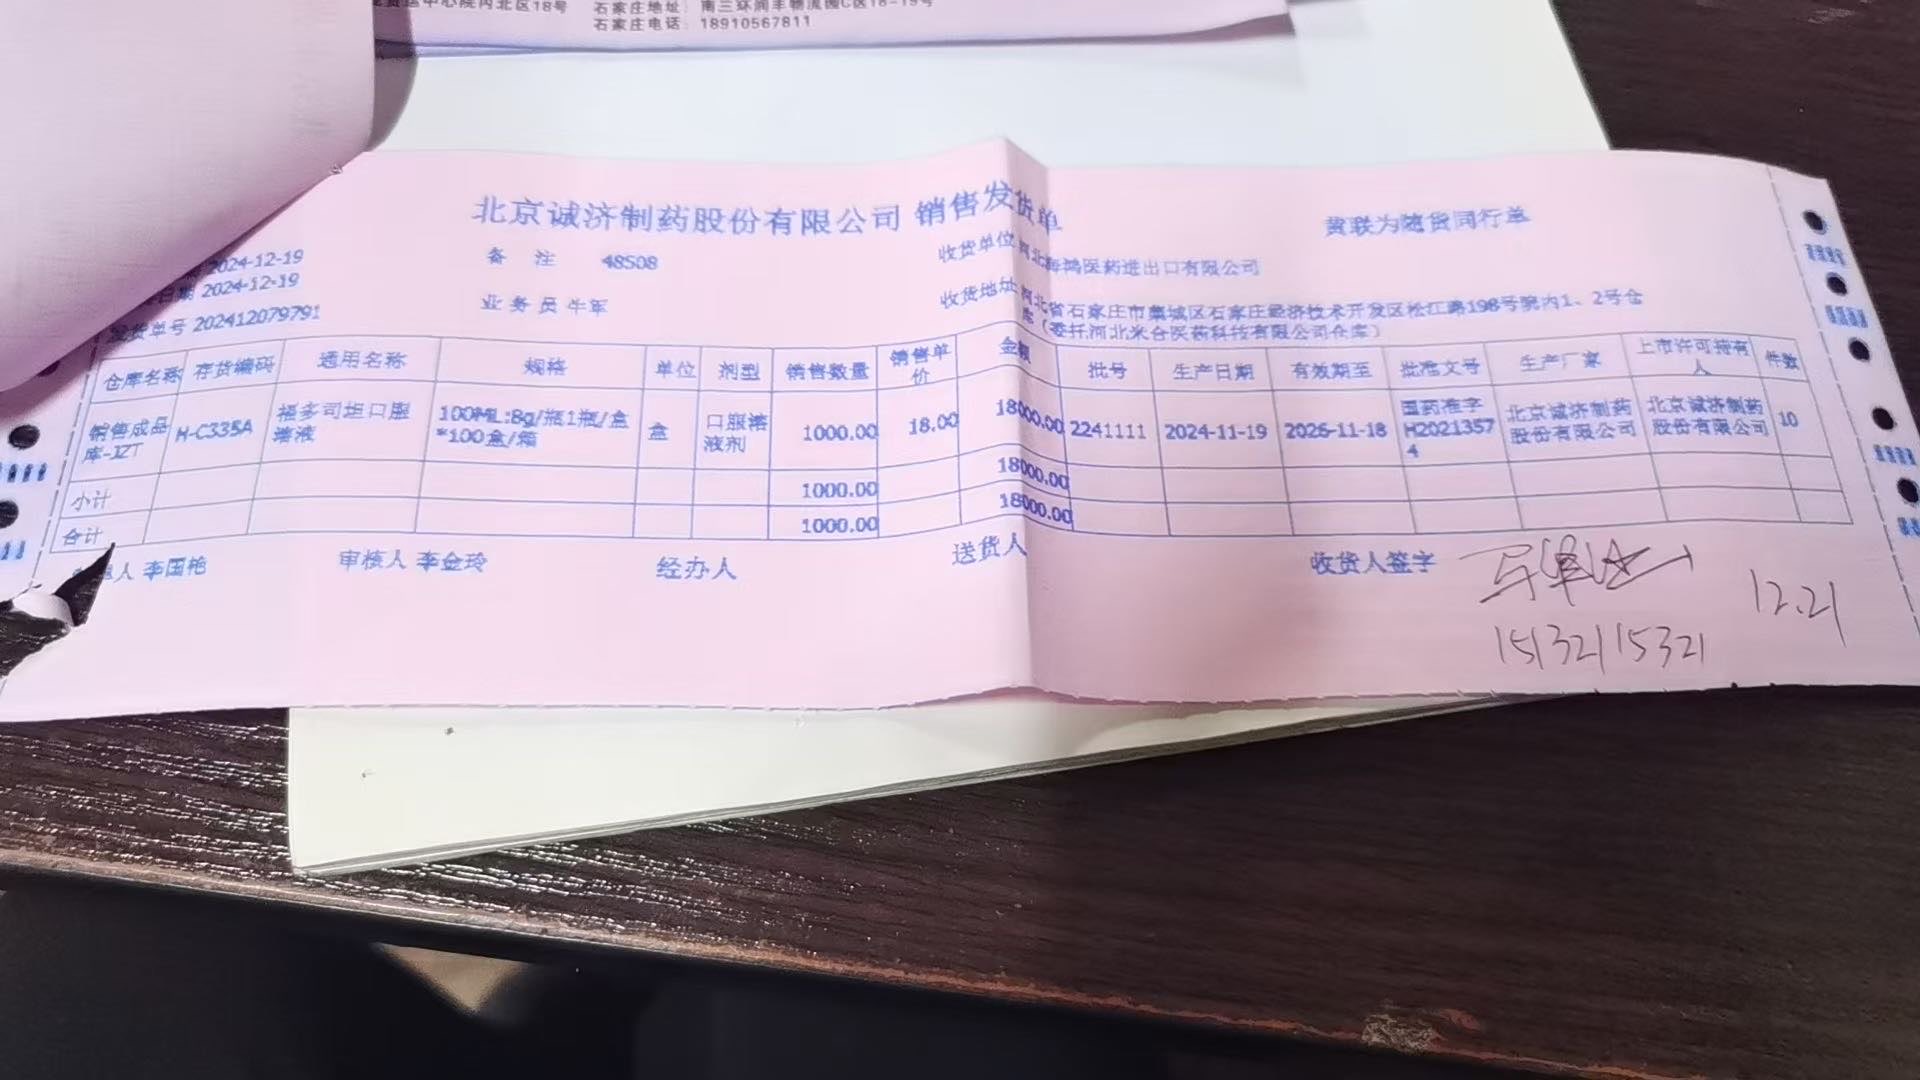 货运中心院内北区18号 石家庄地址：南三环润丰物流园C区18-19号
石家庄电话：18910567811
北京诚济制药股份有限公司 销售发货单 黄联为随货同行单
2024-12-19 备 注 48508 收货单位 河北海鸿医药进出口有限公司
日期 2024-12-19
业 务 员 牛军 收货地址 河北省石家庄市藁城区石家庄经济技术开发区松江路198号院内1、2号仓
发货单号 202412079791 库（委托河北米合医药科技有限公司仓库）
仓库名称 存货编码 通用名称 规格 单位 剂型 销售数量 销售单价 金额 批号 生产日期 有效期至 批准文号 生产厂家 上市许可持有人 件数
销售成品库-JZT H-C335A 福多司坦口服溶液 100ML:8g/瓶1瓶/盒*100盒/箱 盒 口服溶液剂 1000.00 18.00 18000.00 2241111 2024-11-19 2026-11-18 国药准字H20213574 北京诚济制药股份有限公司 北京诚济制药股份有限公司 10
小计 1000.00 18000.00
合计 1000.00 18000.00
人 李国艳 审核人 李金玲 经办人 送货人 收货人签字
12.21
15132115321